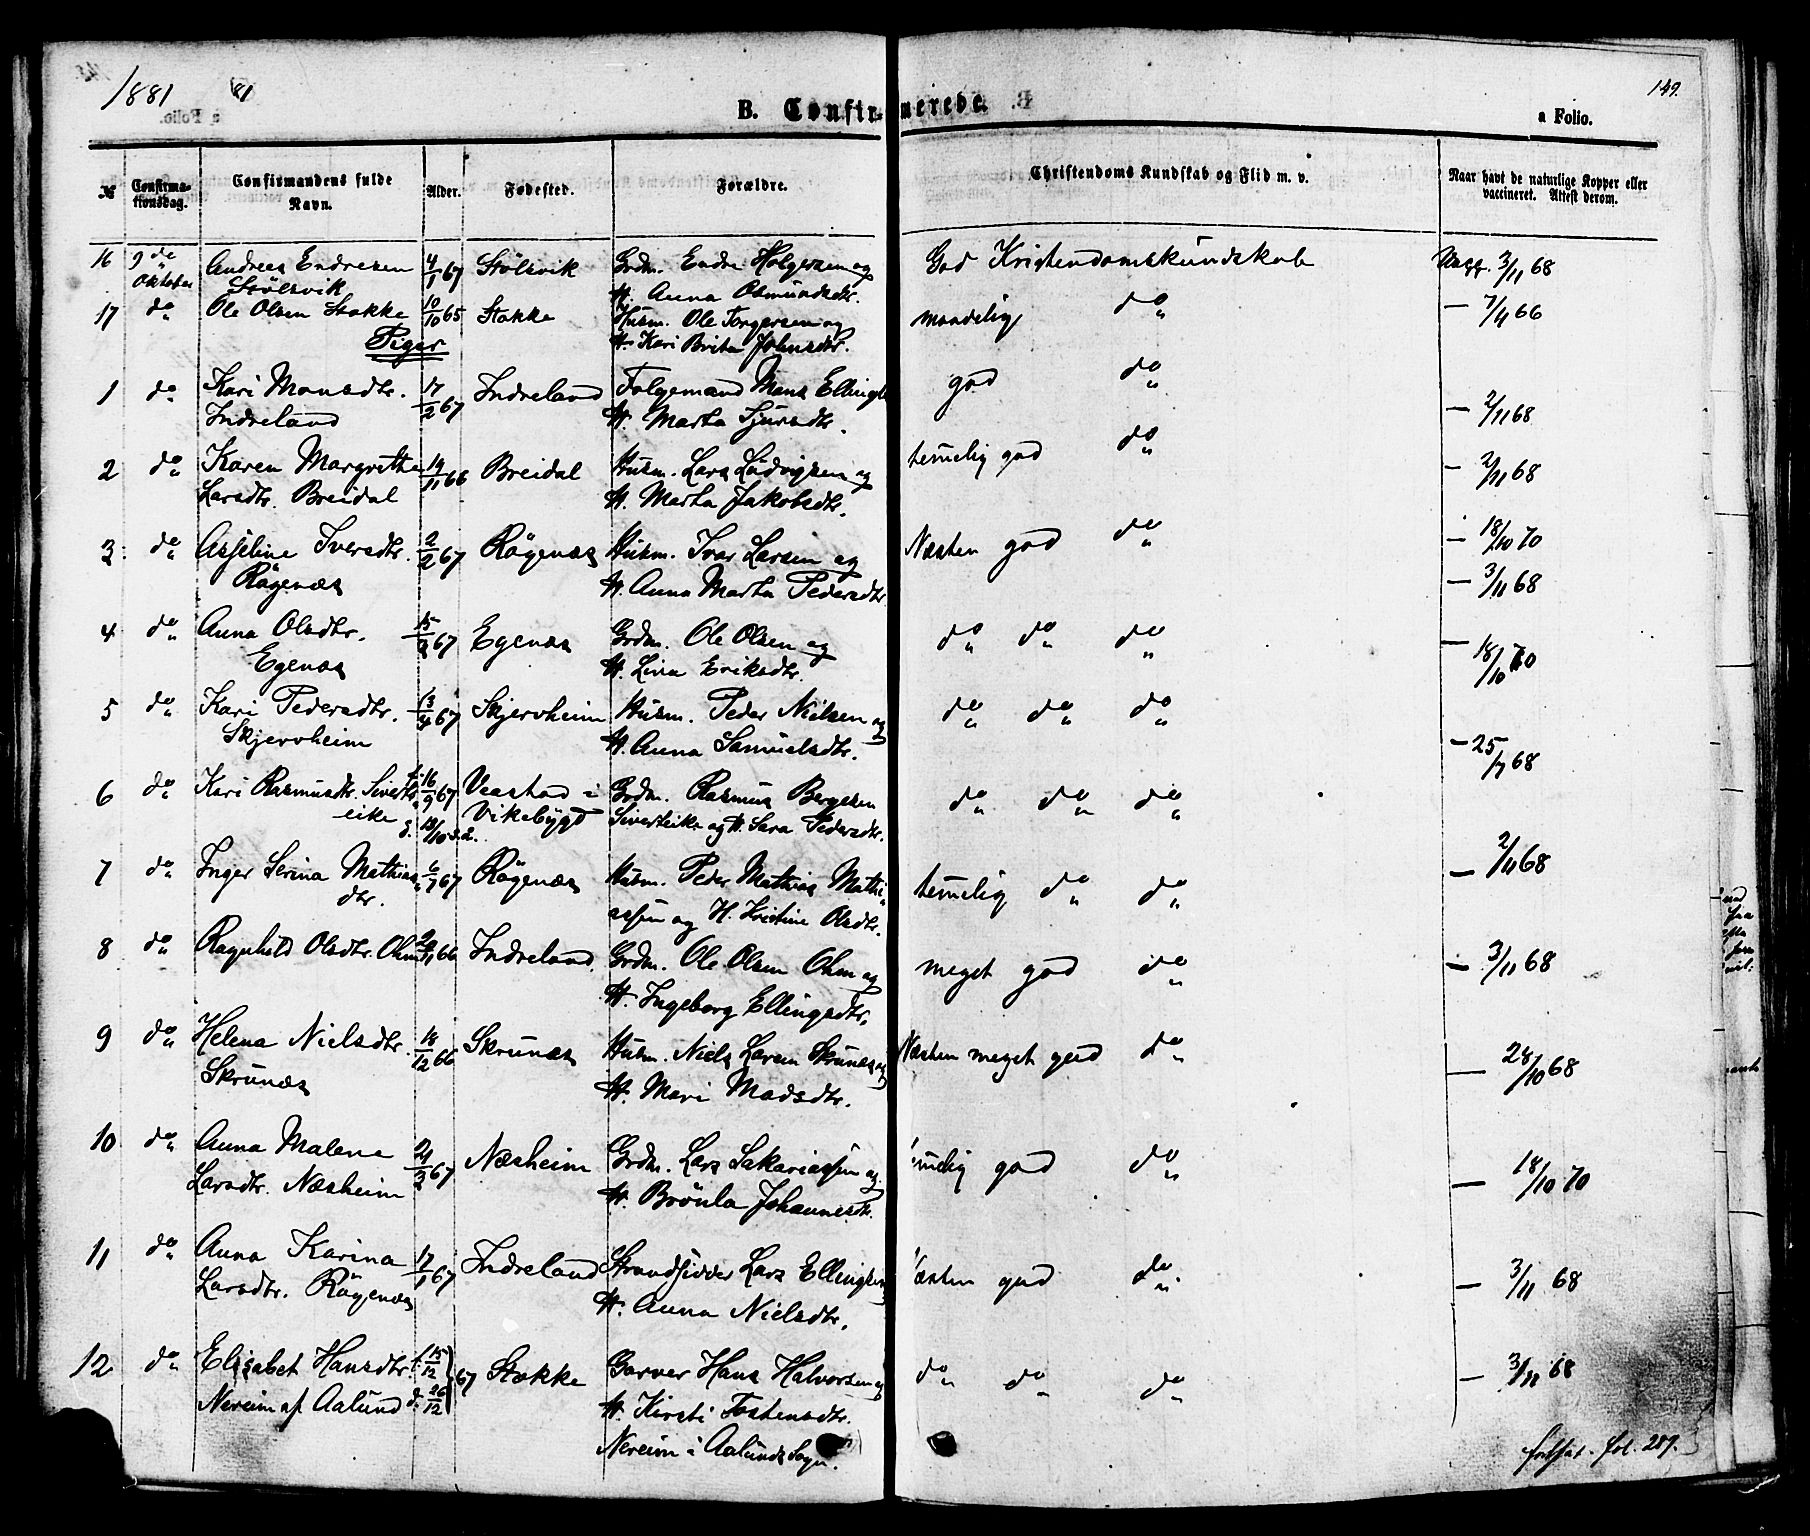 1881 81
B. Confirmerede.
149.
a Folio.
№ Confirmationsdag. Confirmandens fulde Navn. Alder. Fødested. Forældre. Christendoms Kundskab og Flid m. v. Naar havt de naturlige Kopper eller vaccineret. Attest derom.
16 9de Andreas Endresen 4/1 67 Stölsvik Grdm. Endre Holgersen og God Kristendomskundskab Vacc. 3/11 68
Oktober Stölsvik H. Anna Osmundsdtr.
17 do Ole Olsen Stokke 10/10 65 Stokke Husm. Ole Torgersen og maadelig do — 7/4 66
Piger H. Kari Brita Johnsdtr.
1 do Kari Monsdtr. 17/2 67 Indreland Folgemand Mons Ellings god do — 2/11 68
Indreland H. Marta Sjursdtr.
2 do Karen Margrethe 19/11 66 Breidal Husm. Lars Ludvigsen og temelig god do — 2/11 68
Larsdtr. Breidal H. Marta Jakobsdtr.
3 do Asseline Iversdtr. 2/2 67 Rögenæs Husm. Ivar Larsen og Næsten god do — 18/10 70
Rögenæs H. Anna Marta Pedersdtr. — 3/11 68
4 do Anna Olsdtr. 15/2 67 Egenæs Grdm. Ole Olsen og do do do — 18/10 70
Egenæs H. Lina Eriksdtr.
5 do Kari Pedersdtr. 13/4 67 Skjervheim Husm. Peder Nielsen og do do do — 25/7 68
Skjervheim H. Anna Samuelsdtr.
6 do Kari Rasmusdtr. Siverts f. 16/9 67 Vaastad i Grdm. Rasmus Bergesen do do do
eike 13/10 s.a. Vikebygd Siverteike og H. Sara Pedersdtr. — 2/11 68
7 do Inger Serina Mathias 6/7 67 Rögenæs Husm. Peder Mathias Mathi temelig do do
dtr. assen og H. Kristine Olsdtr.
8 do Ragnhild Olsdtr. Ohm 66 Indreland Grdm. Ole Olsen Ohm og meget god do — 3/11 68
H. Ingeborg Ellingsdtr.
9 do Helena Nielsdtr. 18/12 66 Skrunæs Husm. Niels Larsen Skrunæs og Næsten meget god do — 28/10 68
Skrunæs H. Mari Madsdtr.
10 do Anna Malene 21/3 67 Næsheim Grdm. Lars Sakariassen og temelig god do — 18/10 70
Larsdtr. Næsheim H. Brönla Johannesdtr.
11 do Anna Karina 17/1 67 Indreland Strandsidder Lars Ellingsen Næsten god do — 3/11 68
Larsdtr. Rögenæs H. Anna Nielsdtr.
12 do Elisabet Hansdtr. f. 15/12 67 Stokke Garver Hans Halvorsen og do do do — 3/11 68
Nereim af Aalund d. 26/12 H. Kirsti Tostensdtr.
Nereim i Aalunds Sogn.
fortsat. fol. 287.